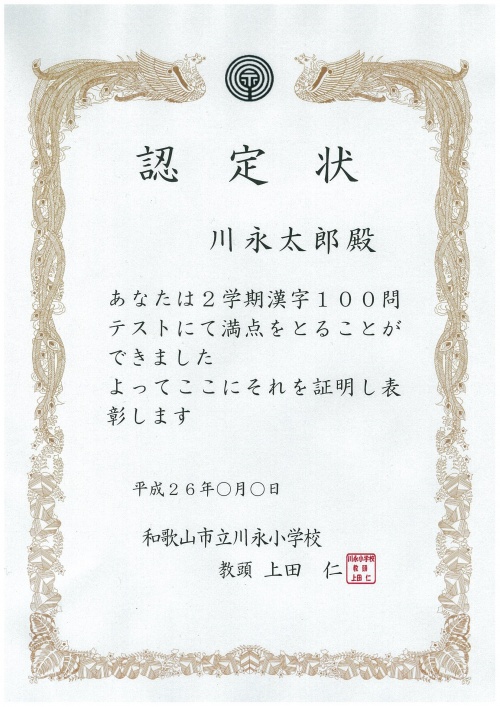 認定状
川永太郎殿
あなたは２学期漢字１００問
テストにて満点をとることが
できました
よってここにそれを証明し表
彰します
平成２６年○月○日
和歌山市立川永小学校
教頭 上田　仁
川永小学校
教頭
上田仁